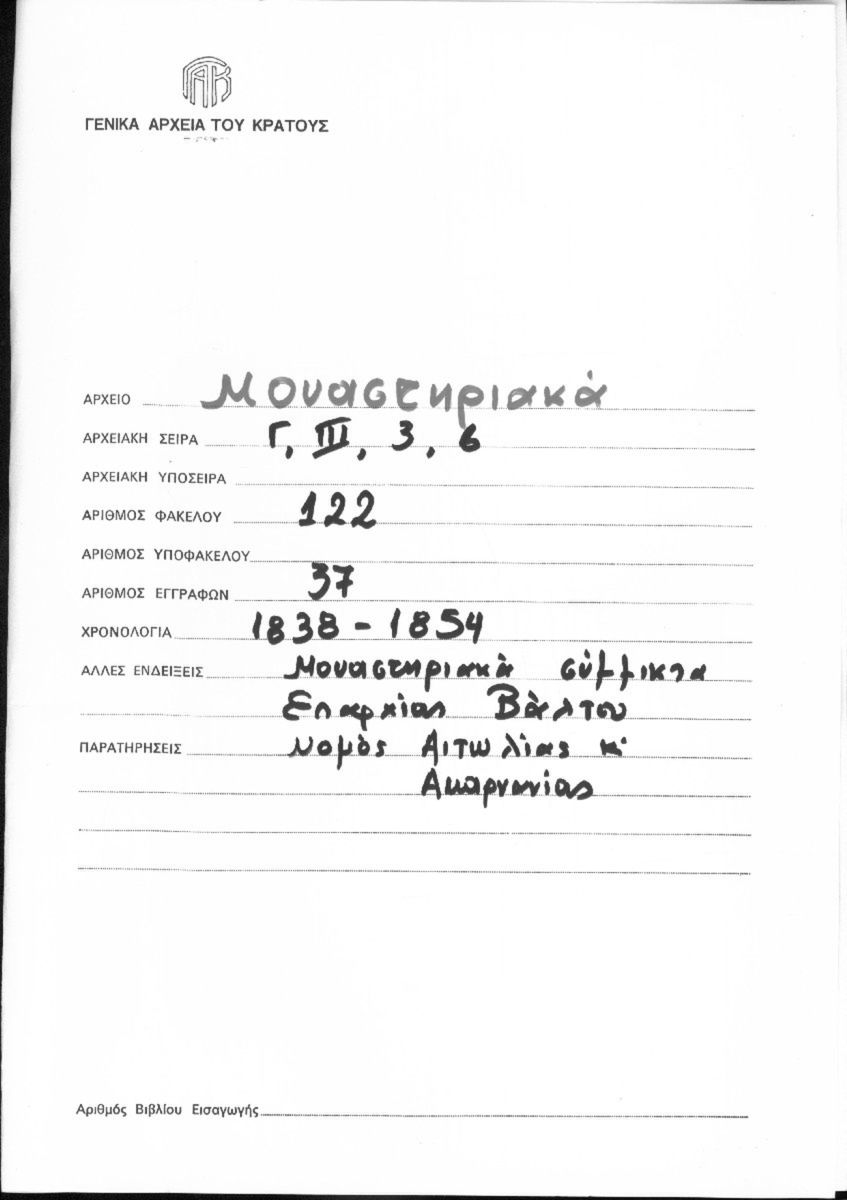 ΓΑΚ
ΓΕΝΙΚΑ ΑΡΧΕΙΑ ΤΟΥ ΚΡΑΤΟΥΣ
ΑΡΧΕΙΟ Μοναστηριακά
ΑΡΧΕΙΑΚΗ ΣΕΙΡΑ Γ, ΙΙΙ, 3, 6
ΑΡΧΕΙΑΚΗ ΥΠΟΣΕΙΡΑ
ΑΡΙΘΜΟΣ ΦΑΚΕΛΟΥ 122
ΑΡΙΘΜΟΣ ΥΠΟΦΑΚΕΛΟΥ
ΑΡΙΘΜΟΣ ΕΓΓΡΑΦΩΝ 37
ΧΡΟΝΟΛΟΓΙΑ 1838 - 1854
ΑΛΛΕΣ ΕΝΔΕΙΞΕΙΣ Μοναστηριακά σύμμικτα
Επαρχίας Βάλτου
ΠΑΡΑΤΗΡΗΣΕΙΣ Νομός Αιτωλίας κ'
Ακαρνανίας
Αριθμός Βιβλίου Εισαγωγής